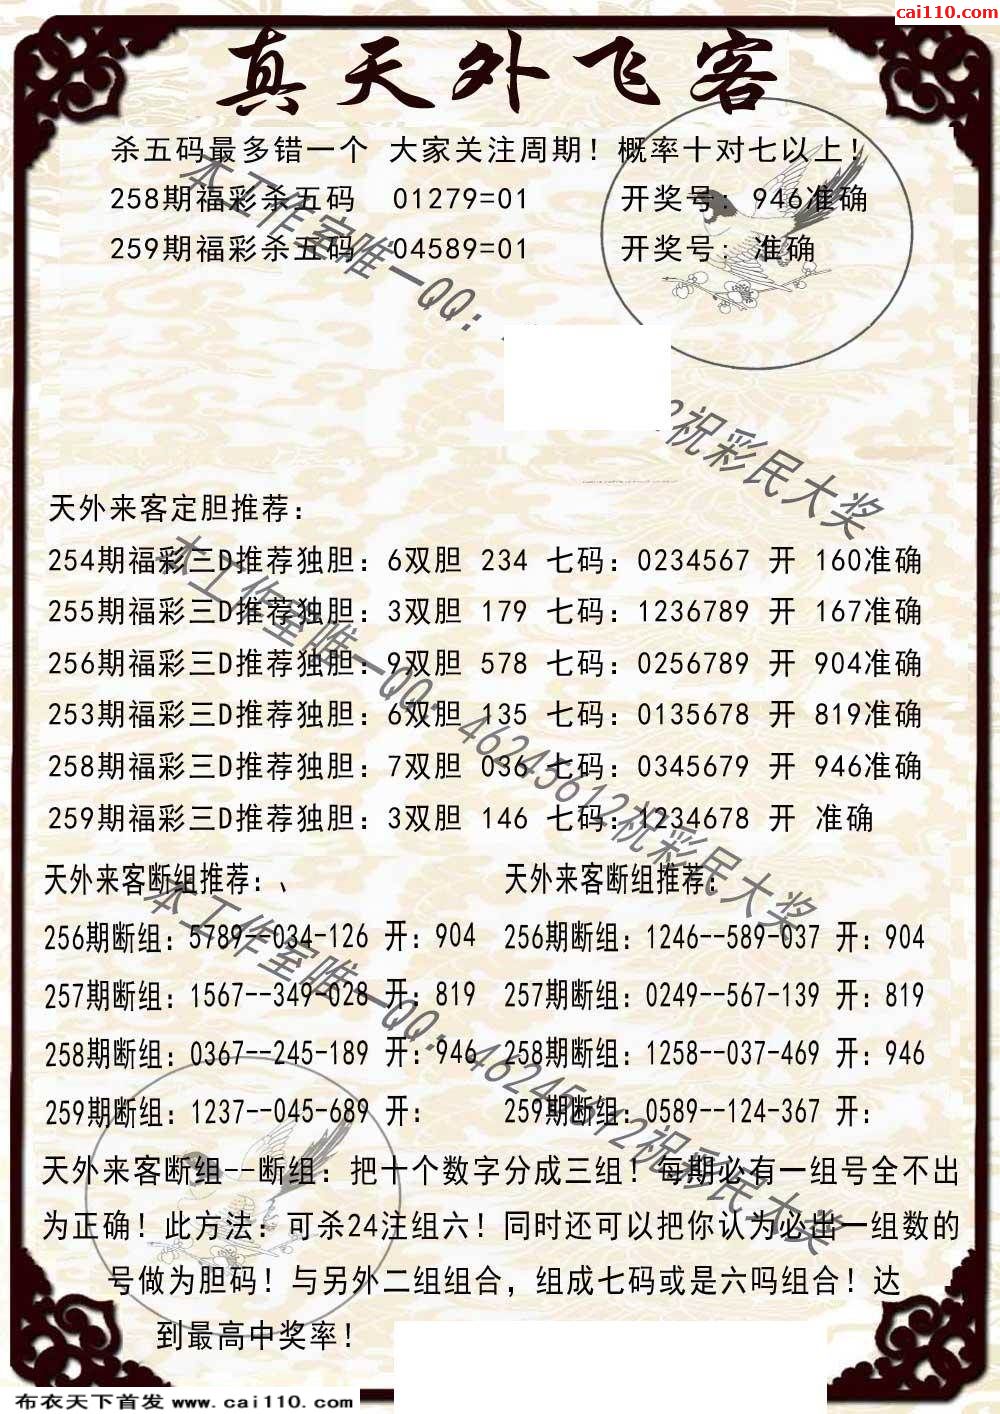 cai110.com
真天外飞客
杀五码最多错一个 大家关注周期！概率十对七以上！
258期福彩杀五码 01279=01 开奖号：946准确
259期福彩杀五码 04589=01 开奖号：准确
本工作室唯一QQ：
2祝彩民大奖
天外来客定胆推荐：
254期福彩三D推荐独胆：6双胆 234 七码：0234567 开 160准确
255期福彩三D推荐独胆：3双胆 179 七码：1236789 开 167准确
256期福彩三D推荐独胆：9双胆 578 七码：0256789 开 904准确
253期福彩三D推荐独胆：6双胆 135 七码：0135678 开 819准确
258期福彩三D推荐独胆：7双胆 036 七码：0345679 开 946准确
259期福彩三D推荐独胆：3双胆 146 七码：1234678 开 准确
本工作室唯一QQ：46245612祝彩民大奖
天外来客断组推荐：、 天外来客断组推荐：
256期断组：5789--034-126 开：904 256期断组：1246--589-037 开：904
257期断组：1567--349-028 开：819 257期断组：0249--567-139 开：819
258期断组：0367--245-189 开：946 258期断组：1258--037-469 开：946
259期断组：1237--045-689 开： 259期断组：0589--124-367 开：
本工作室唯一QQ：46245612祝彩民大奖
天外来客断组--断组：把十个数字分成三组！每期必有一组号全不出
为正确！此方法：可杀24注组六！同时还可以把你认为必出一组数的
号做为胆码！与另外二组组合，组成七码或是六吗组合！达
到最高中奖率！
布衣天下首发 www.cai110.com